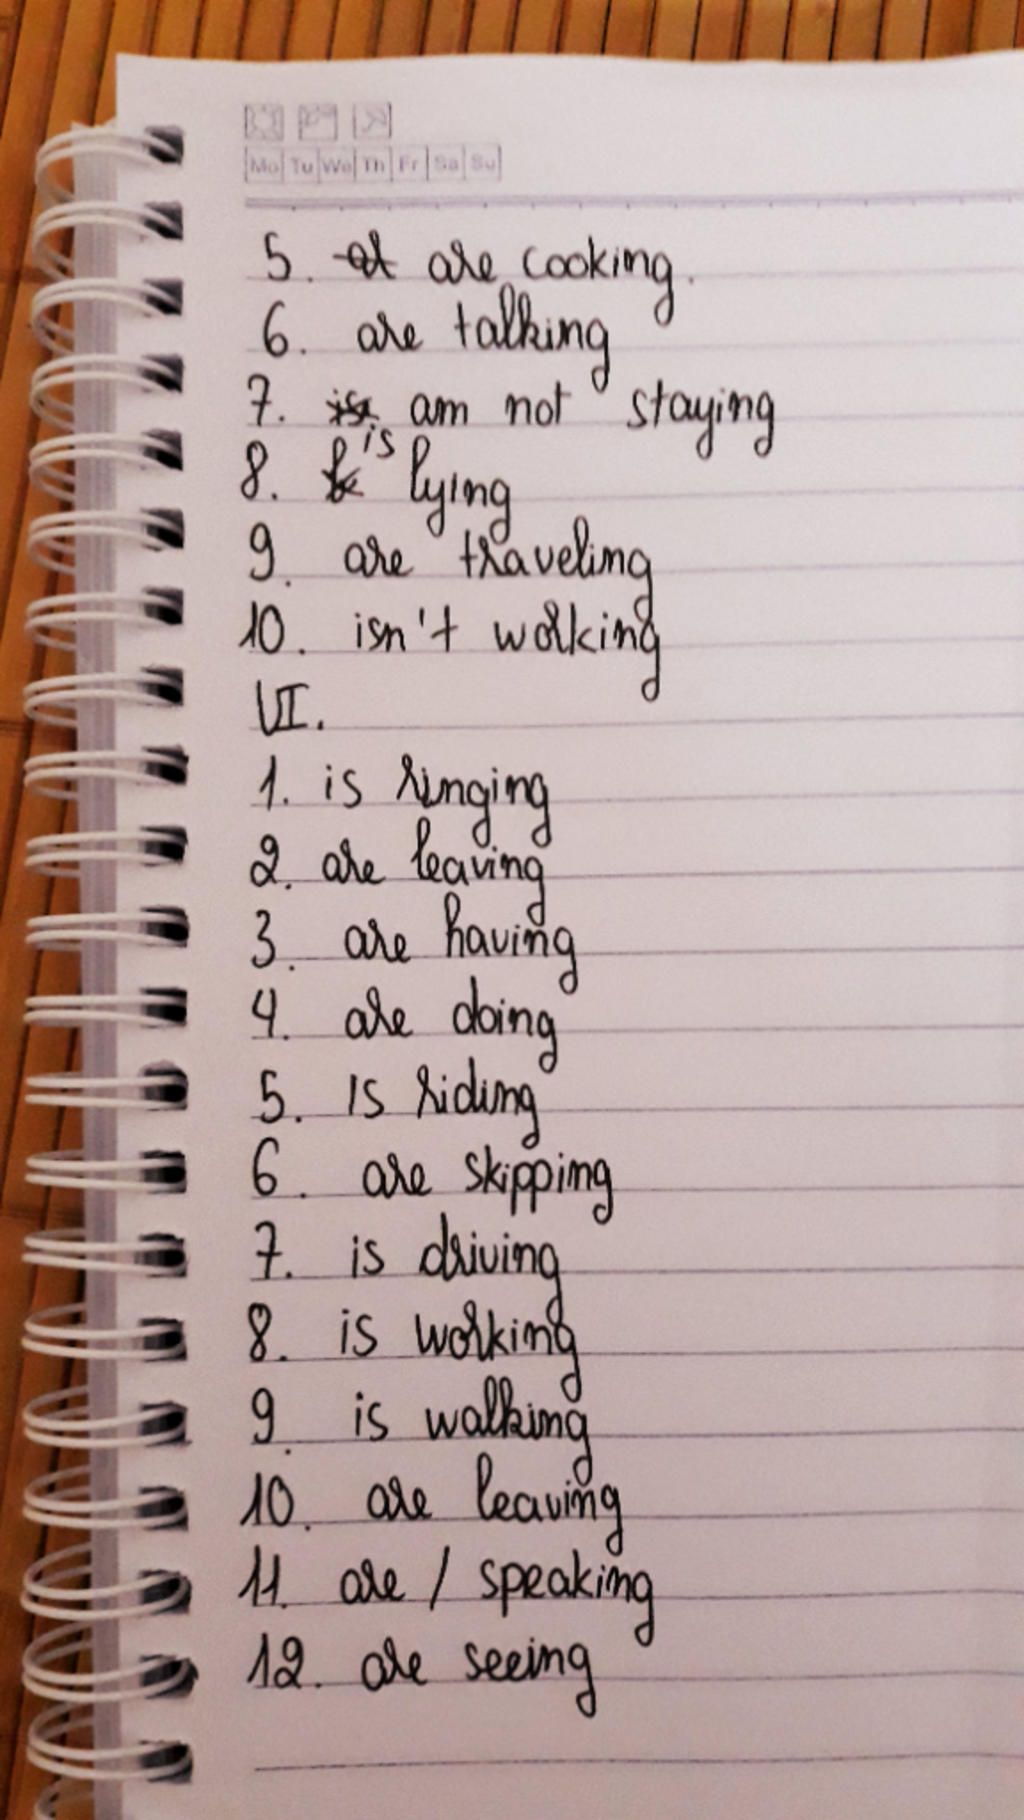 Mo Tu We Th Fr Sa Su
5. are cooking.
6. are talking
7. am not staying
8. is lying
9. are traveling
10. isn't working
VI.
1. is ringing
2. are leaving
3. are having
4. are doing
5. is riding
6. are skipping
7. is driving
8. is working
9. is walking
10. are leaving
11. are / speaking
12. are seeing